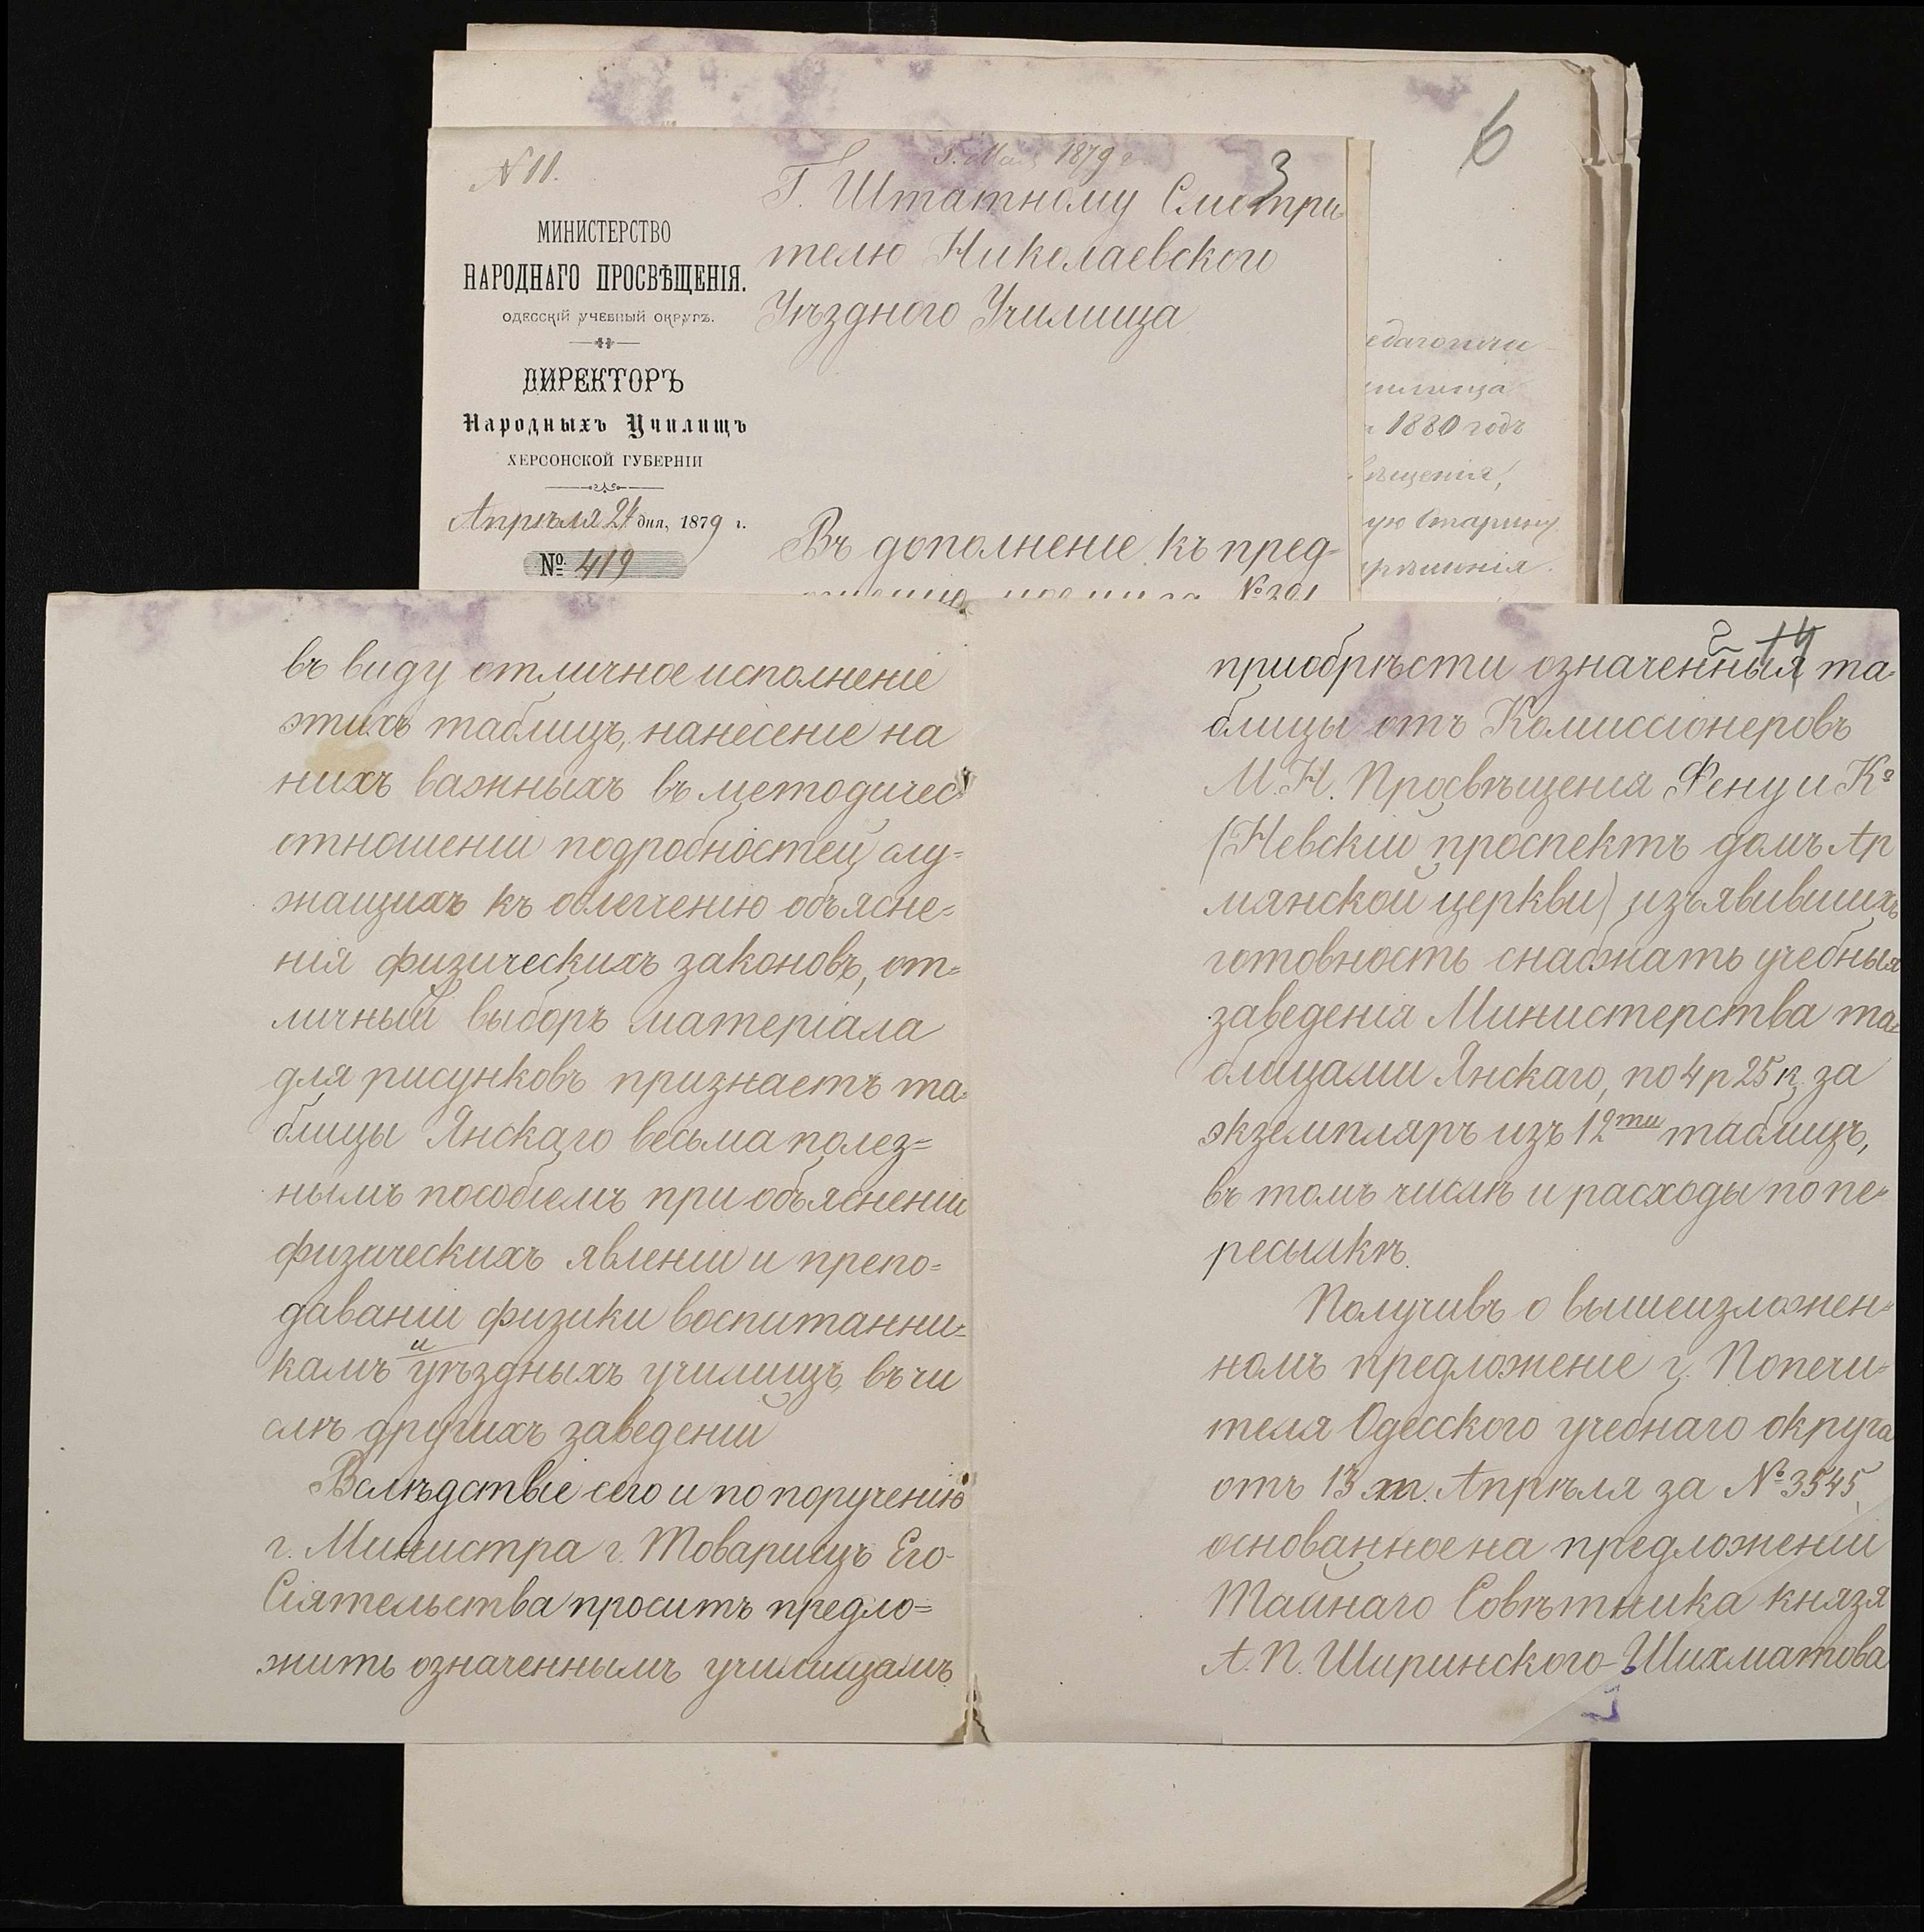 6
N 11.
МИНИСТЕРСТВО
НАРОДНАГО ПРОСВѢЩЕНІЯ.
ОДЕССКІЙ УЧЕБНЫЙ ОКРУГЪ.
ДИРЕКТОРЪ
Народныхъ Училищъ
ХЕРСОНСКОЙ ГУБЕРНІИ
Апрѣля 24 дня, 1879 г.
№ 419
5. Мая 1879 г.
3
Г. Штатному Смотри-
телю Николаевского
Уѣзднаго Училища
Въ дополненіе къ пред-
№ 391
1880 годъ
Старину
въ виду отличное исполненіе
этихъ таблицъ, нанесеніе на
нихъ важныхъ въ методичес
отношеніи подробностей слу=
жащихъ къ облегченію объясне=
нія физическихъ законовъ, от=
личный выборъ матеріала
для рисунковъ признаетъ та=
блицы Янскаго весьма полез=
нымъ пособіемъ при объясненіи
физическихъ явленій и препо=
даваніи физики воспитанни=
камъ и уѣздныхъ училищъ, въ чи
слѣ другихъ заведеній
Вслѣдствіе сего и по порученію
г. Министра г. Товарищъ Его-
Сіятельства проситъ предло=
жить означеннымъ училищамъ
2 14
приобрѣсти означенныя та=
блицы отъ Комиссіонеровъ
М. Н. Просвѣщенія Фену и Кº
(Невскій проспектъ домъ Ар
мянской церкви) изъявившихъ
готовность снабжать учебныя
заведенія Министерства та=
блицами Янскаго, по 4 р 25 к за
экземпляръ изъ 12ти таблицъ,
въ томъ числѣ и расходы по пе=
ресылкѣ.
Получивъ о вышеизложен=
номъ предложеніе г. Попечи=
теля Одесского учебнаго округа
отъ 13 Апрѣля за № 3545,
основанное на предложеніи
Тайнаго Совѣтника князя
А. П. Ширинского-Шихматова